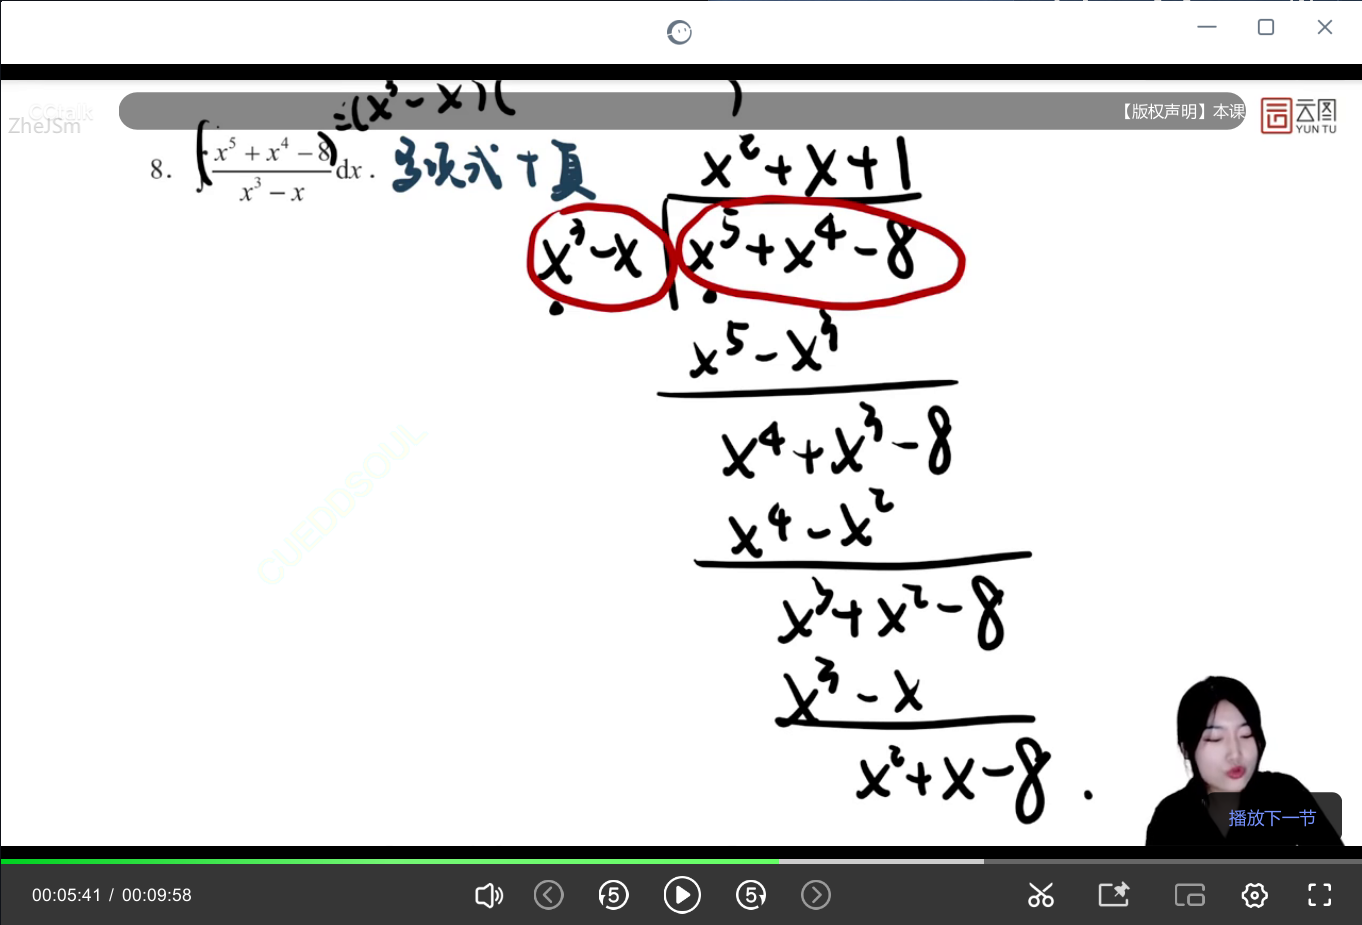 CCtalk
ZheJSm
÷(x³-x)(        )
【版权声明】本课
云图
YUN TU
8. ∫(x⁵+x⁴-8)/(x³-x) dx.
多项式+真
x²+x+1
x³-x
x⁵+x⁴-8
x⁵-x³
x⁴+x³-8
x⁴-x²
x³+x²-8
x³-x
x²+x-8.
CUEDDSOUL
播放下一节
00:05:41 / 00:09:58
5
5